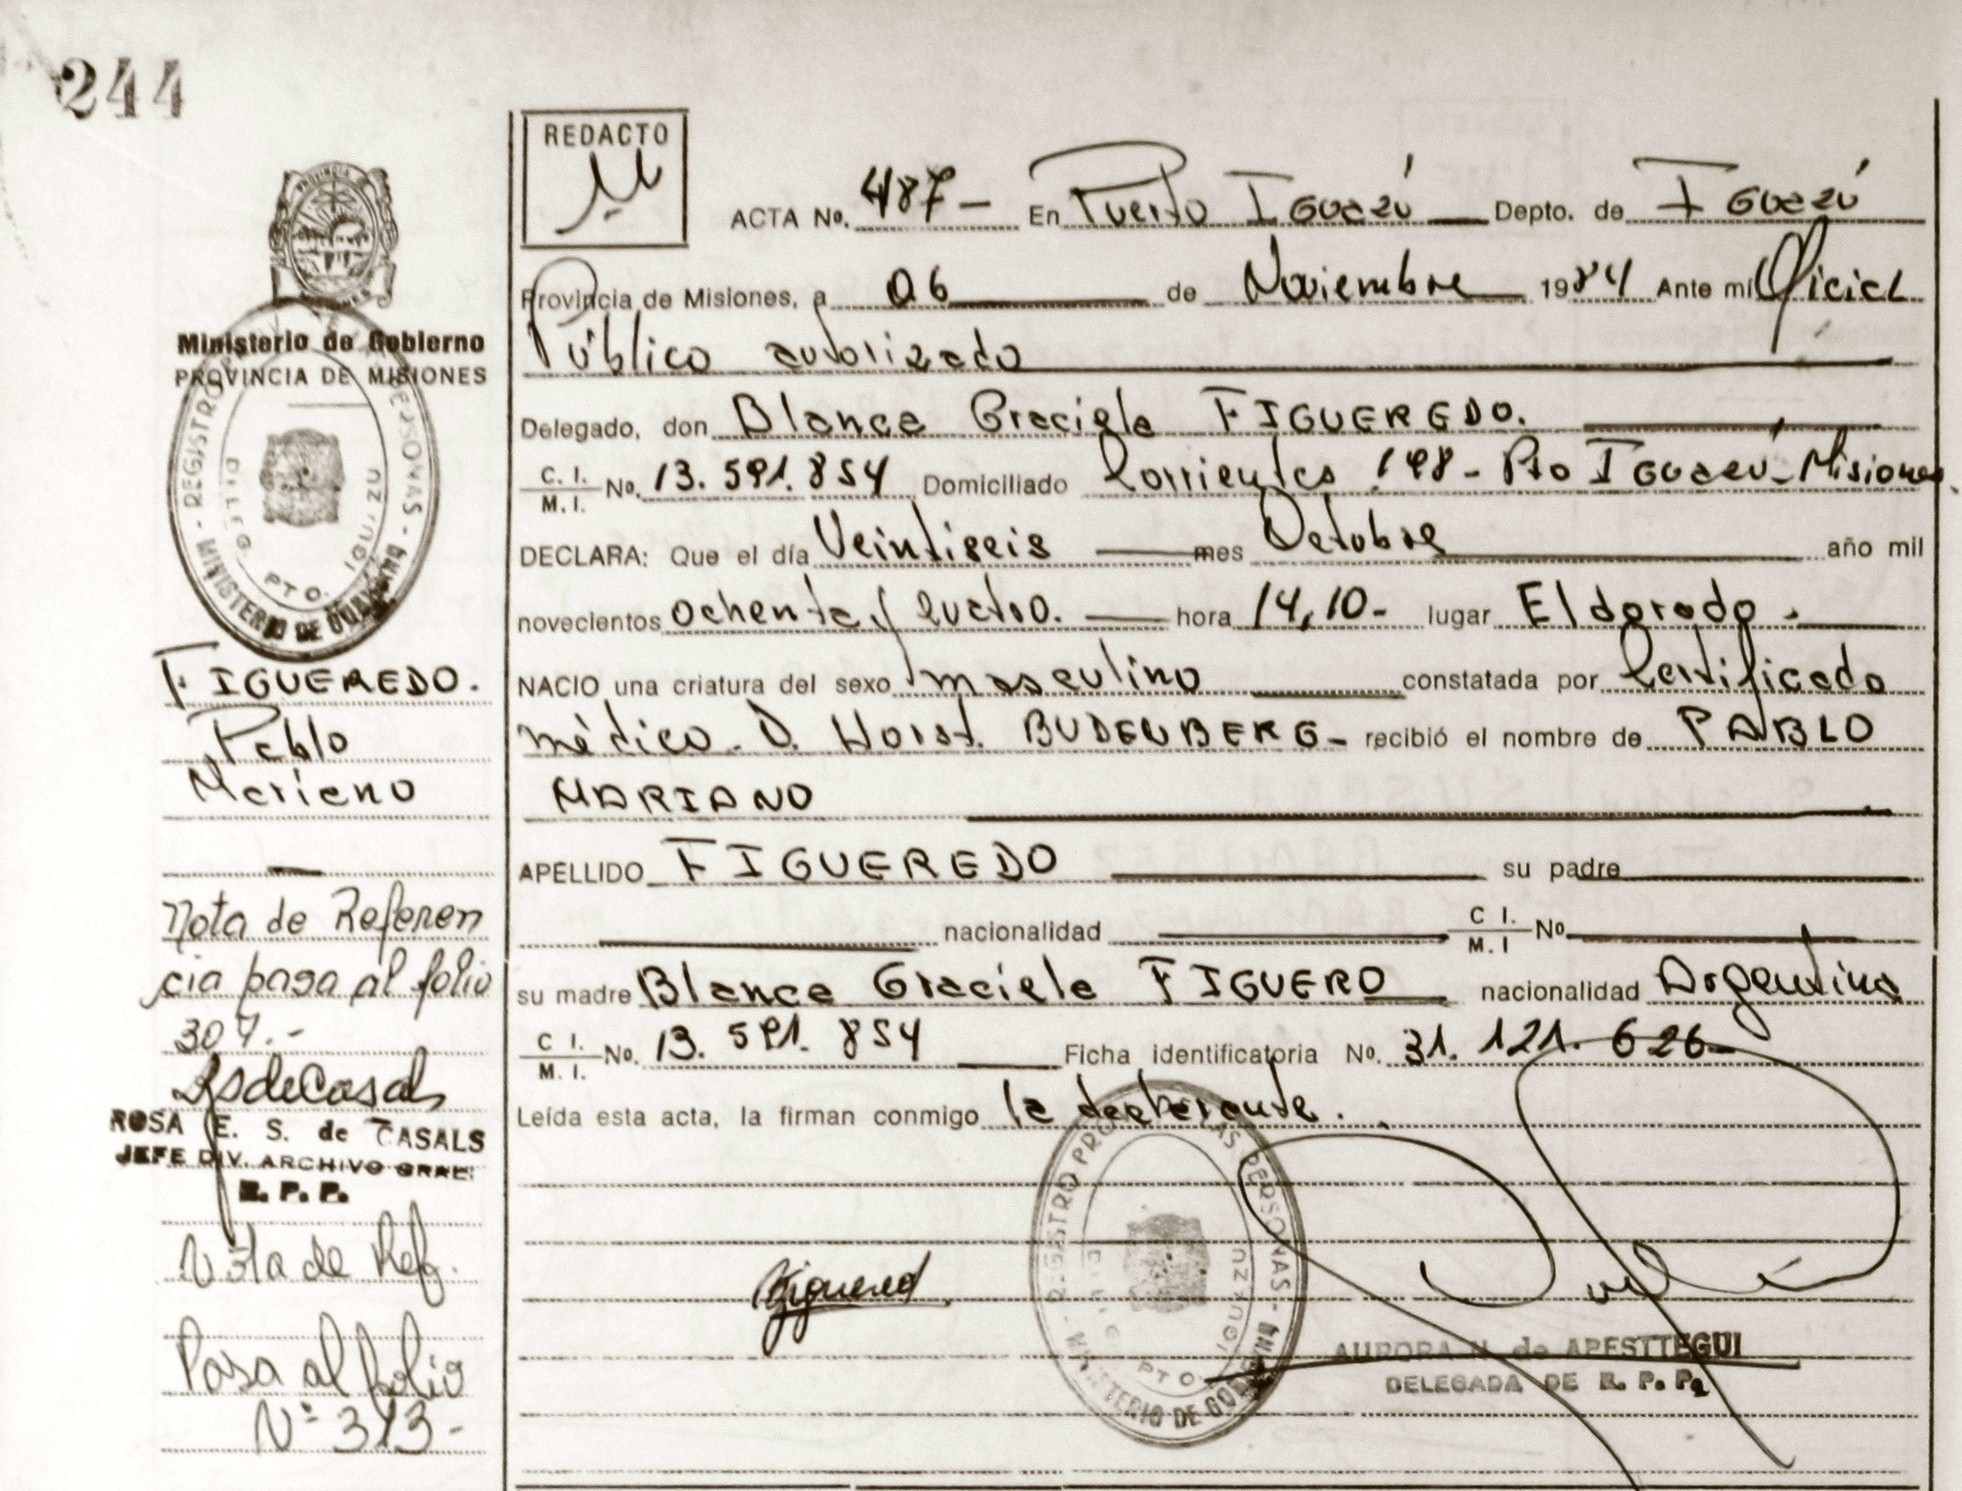 244
REDACTO
ACTA No. 487- En Puerto Iguazú Depto. de Iguazú
Provincia de Misiones, a 06 de Noviembre 1984 Ante mi Oficial
Público autorizado
Delegado, don Blanca Graciela FIGUEREDO.
C. I. M. I. No. 13.591.854 Domiciliado Corrientes 198 - Pto Iguazú - Misiones.
DECLARA: Que el día Veintiseis mes Octubre año mil
novecientos ochenta y cuatro. hora 14,10- lugar Eldorado.
NACIO una criatura del sexo masculino constatada por Certificado
médico D. Horst. BUDENBERG- recibió el nombre de PABLO
MARIANO
APELLIDO FIGUEREDO su padre
nacionalidad C I. M. I No
su madre Blanca Graciela FIGUERO nacionalidad Argentina
C I. M. I. No. 13.591.854 Ficha identificatoria No. 31.121.626-
Leída esta acta, la firman conmigo la declarante.
Figuered
AURORA de APESTTEGUI
DELEGADA DE R. P. P.
REGISTRO PROV. DE LAS PERSONAS - MINISTERIO DE GOBIERNO
DELEG. PTO. IGUAZU
PROVINCIA DE MISIONES
Ministerio de Gobierno
PROVINCIA DE MISIONES
REGISTRO PERSONAS - MINISTERIO DE GOBIERNO
DELEG. PTO. IGUAZU
FIGUEREDO.
Pablo
Mariano
Nota de Referen
cia pasa al folio
307.-
RSdeCasals
ROSA E. S. de CASALS
JEFE DIV. ARCHIVO GRAL.
R. P. P.
Nota de Ref.
Pasa al folio
N° 313-